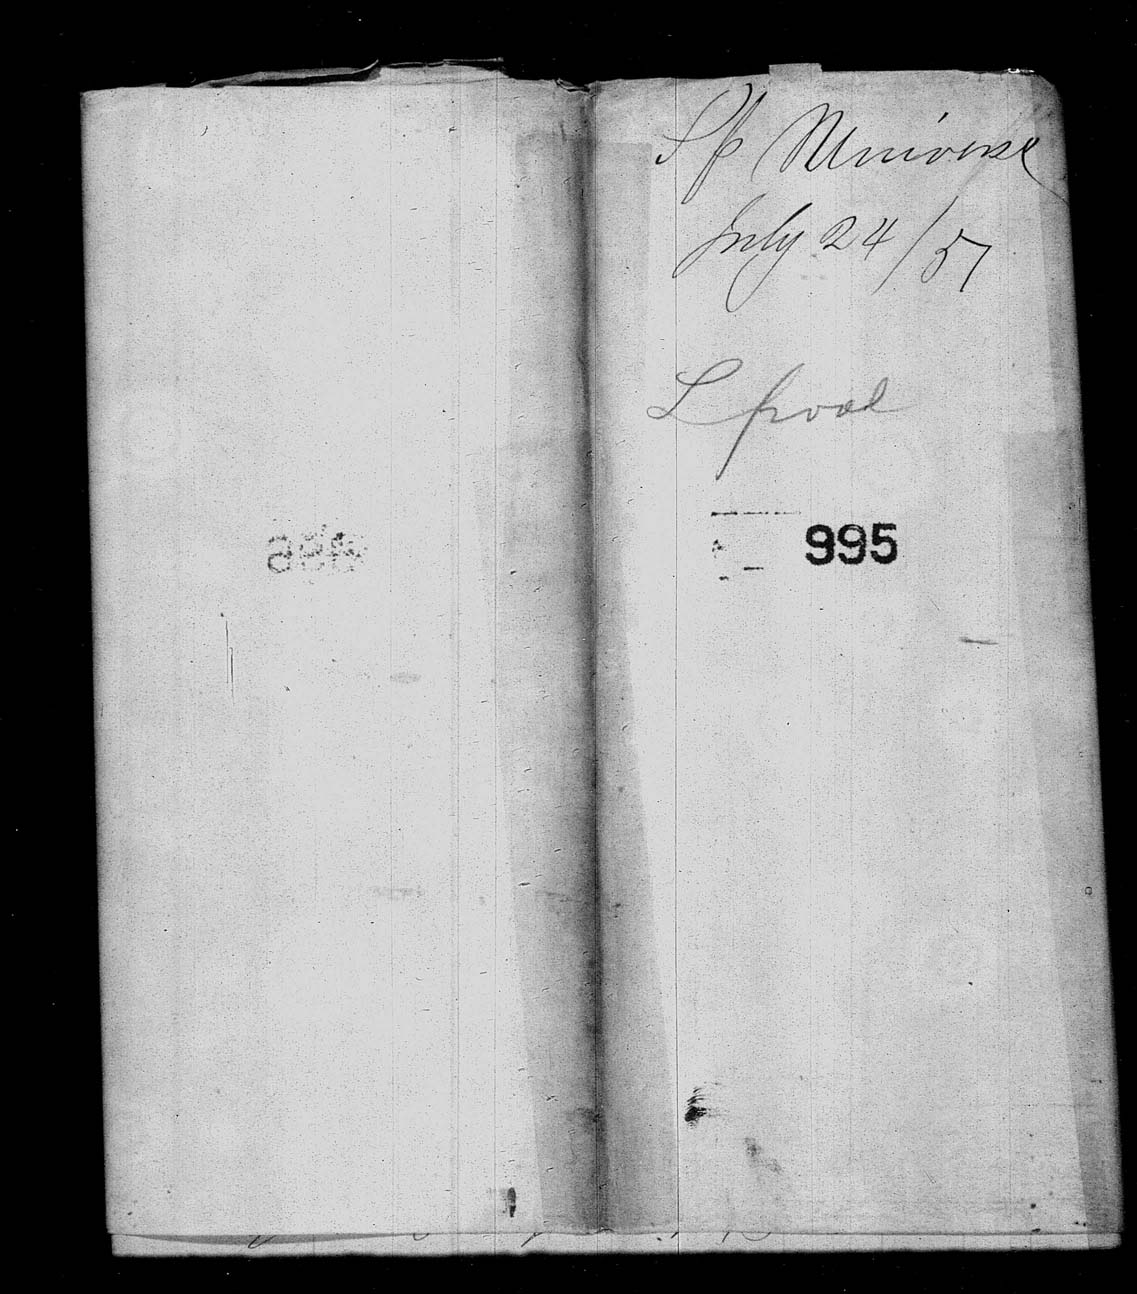 Sp Universe
July 24/57
L pool
995